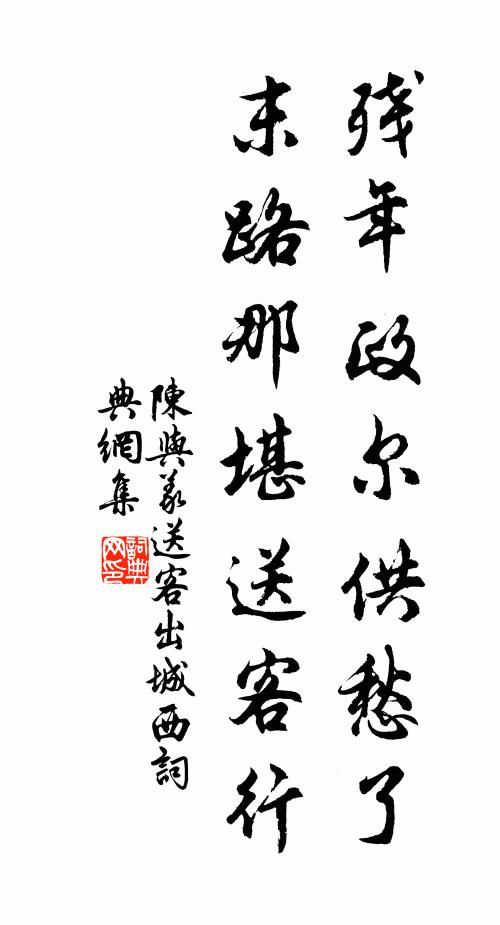 残年政尔供愁了
末路那堪送客行
陳與義送客出城西詞
典網集
詞典
网印